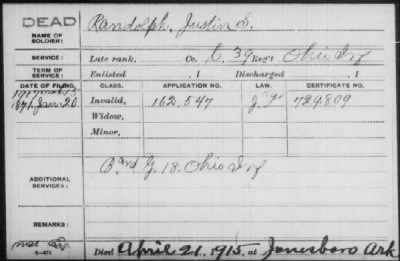 DEAD
NAME OF SOLDIER:
Randolph, Justin S.
SERVICE:
Late rank, Co. C. 39 Reg't Ohio Inf
TERM OF SERVICE:
Enlisted , 1 Discharged , 1
DATE OF FILING. CLASS. APPLICATION NO. LAW. CERTIFICATE NO.
1871 Jan. 20 Invalid, 162.547 729.809
Widow,
Minor,
ADDITIONAL SERVICES:
B and G. 18. Ohio Inf
REMARKS:
3-471
Died April 21, 1915, at Jonesboro Ark